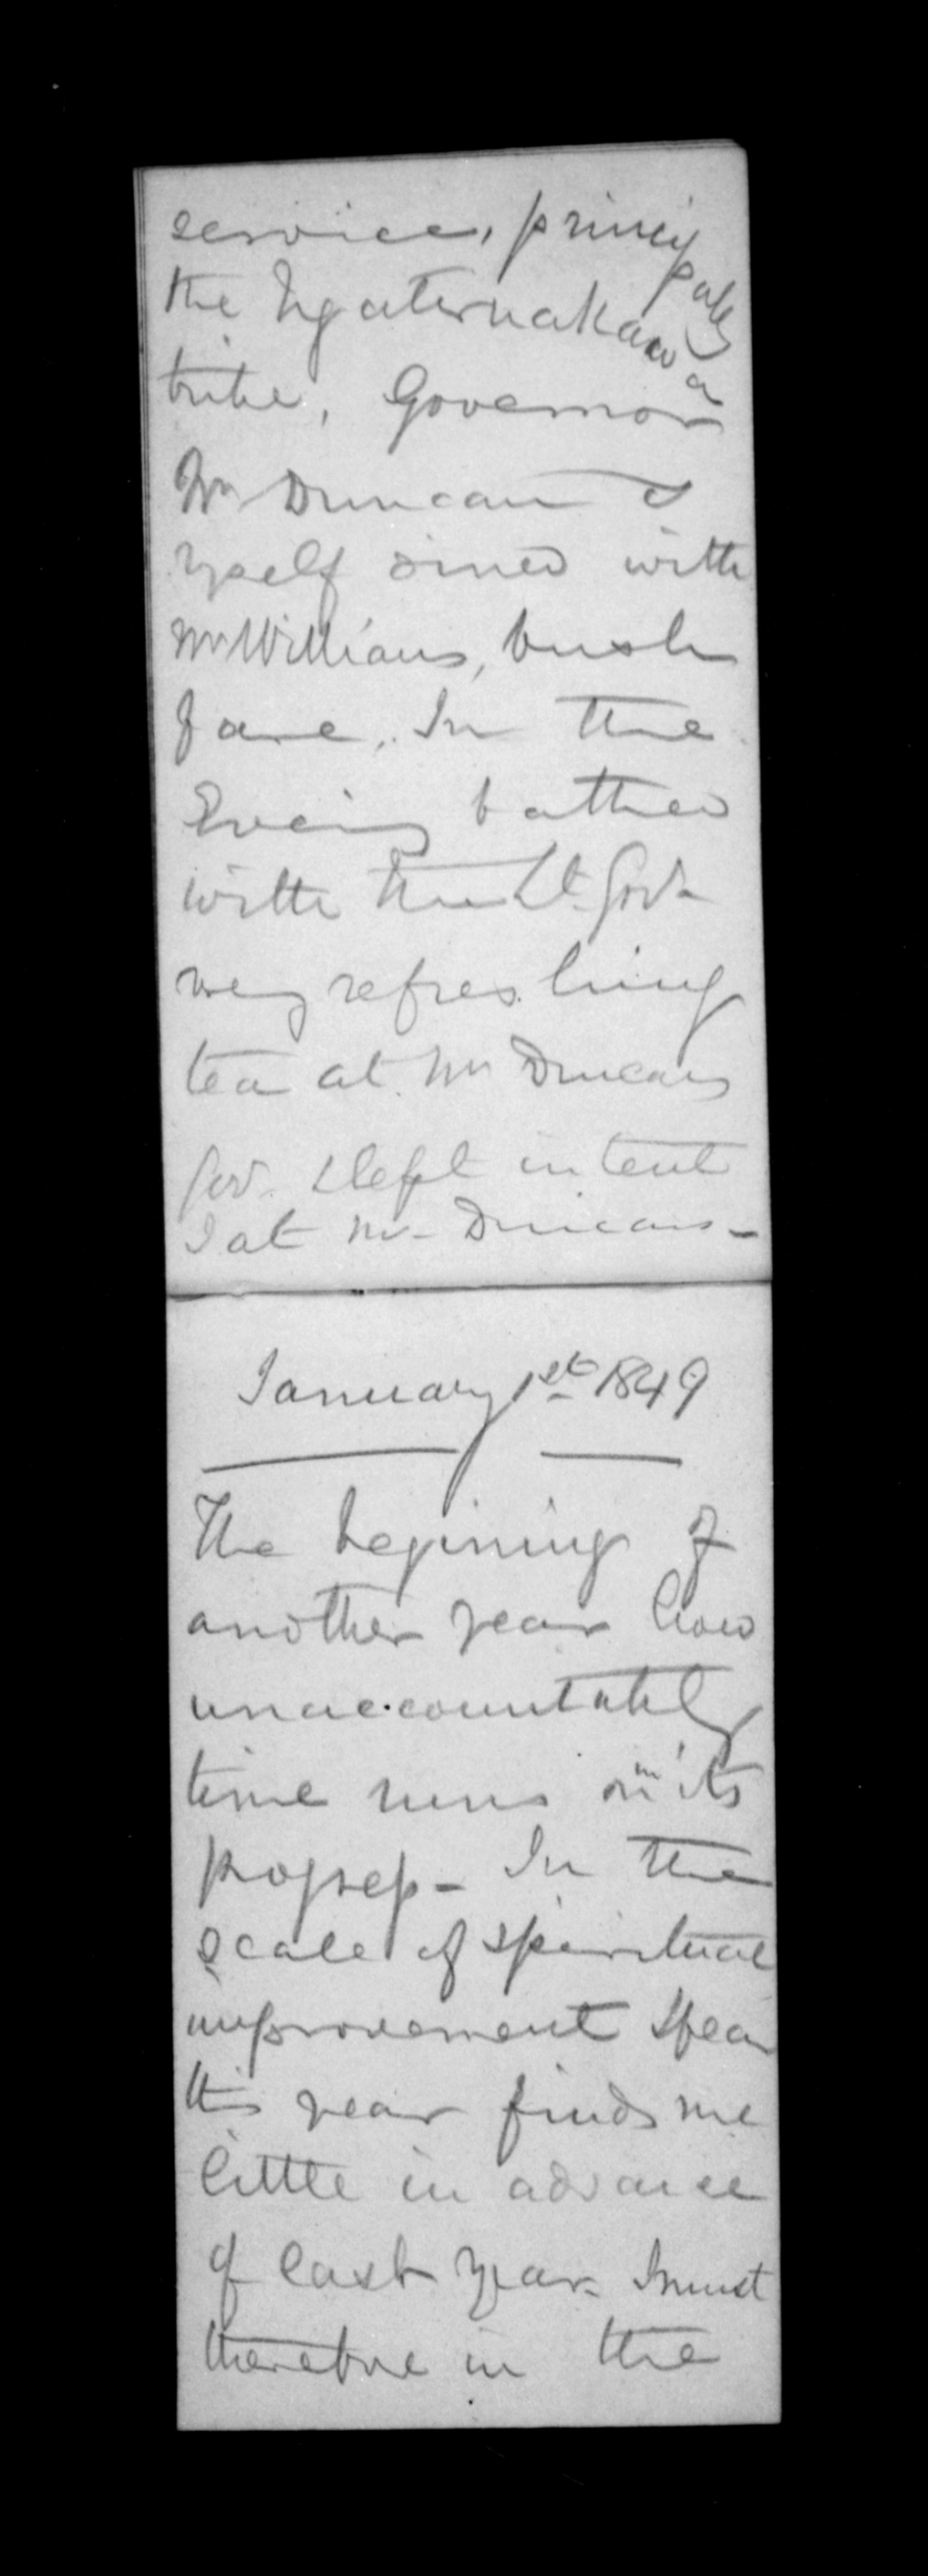 service, principally
the Ngaternakawa
tribe, Governor
Mr Duncan &
myself dined with
Mr Williams, bush
fare. In the
Evening bathed
with the Lt. Govr
very refreshing
tea at Mr Duncans
Gov. slept in tent
I at Mr Duncans -
January 1st 1849
The begining of
another year how
unaccountably
time runs on in its
progress - In the
scale of spiritual
improvement I fear
this year finds me
little in advance
of last year. I must
therefore in the